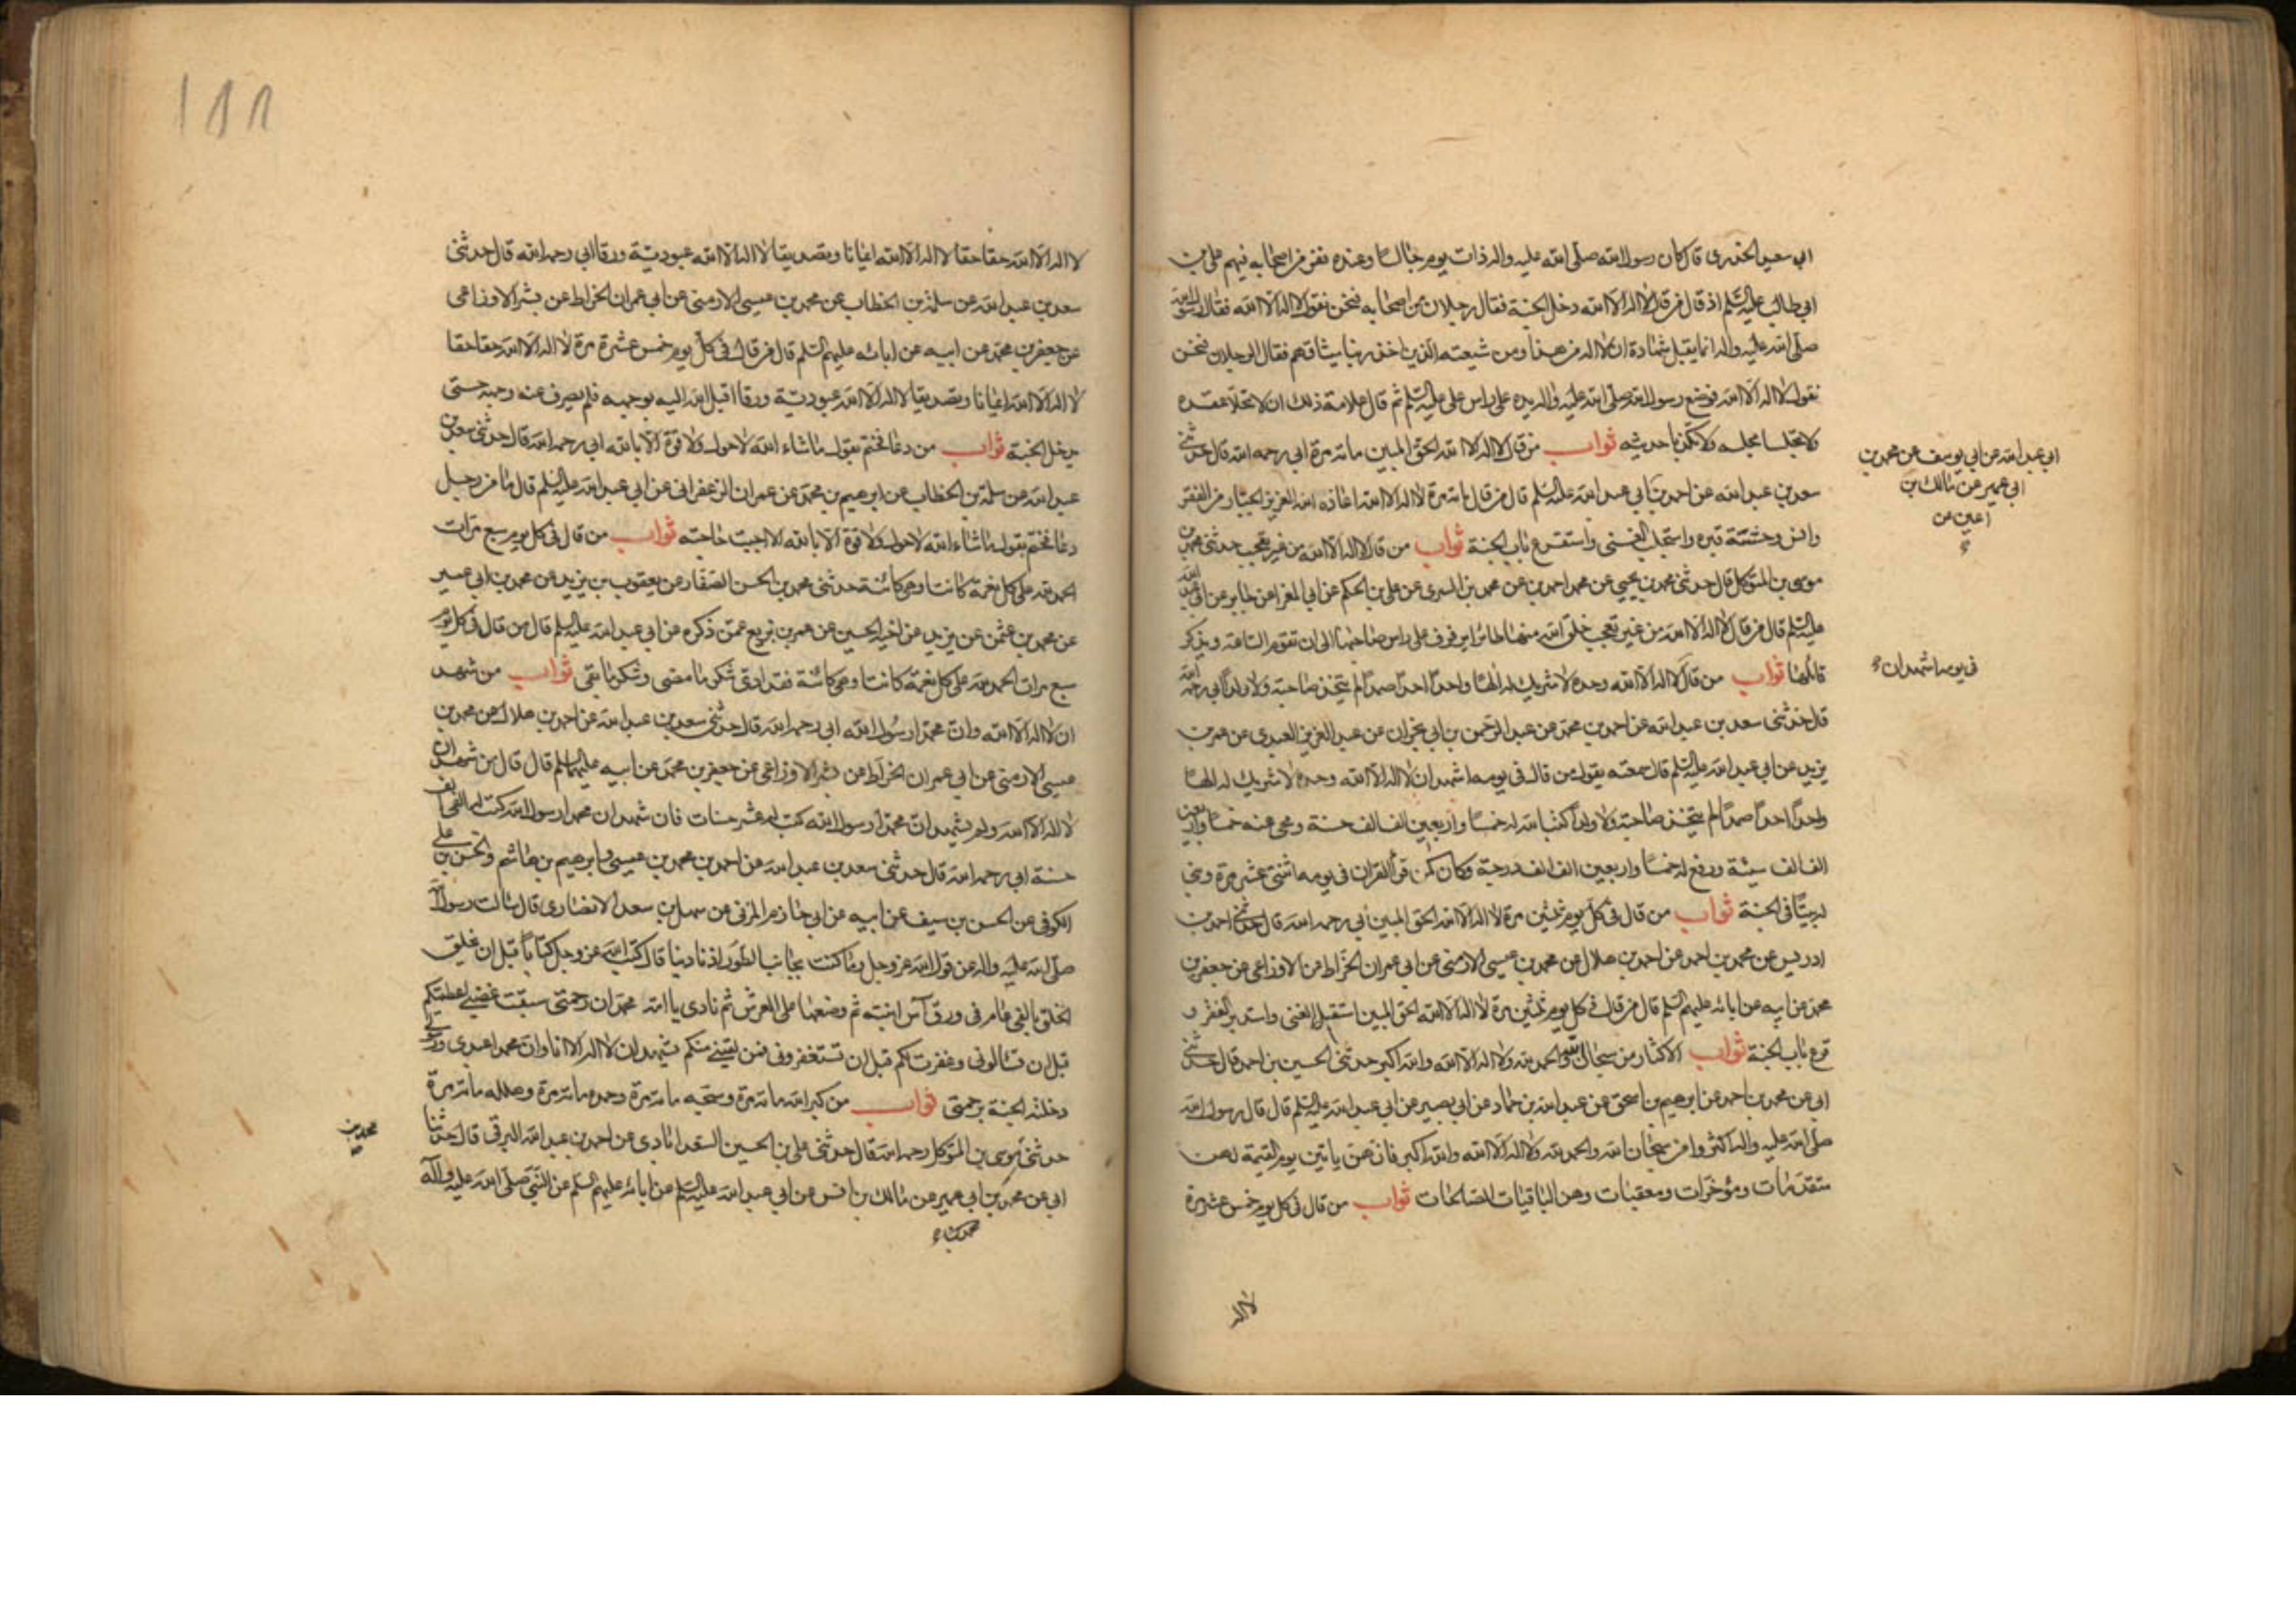 ابي سعيد الخدري قال كان رسول الله صلى الله عليه واله ذات يوم جالسا وعنده نفر من اصحابه فيهم علي بن
ابي طالب عليه السلم اذ قال من قال لا اله الا الله دخل الجنة فقال رجلان من اصحابه فنحن نقول لا اله الا الله فقال رسول الله
صلى الله عليه واله انما يقبل شهادة ان لا اله من هذا ومن شيعته الذين اخذ ربنا ميثاقهم فقال الرجلان فنحن
نقول لا اله الا الله فوضع رسول الله صلى الله عليه واله يده على راس علي عليه السلم ثم قال علامة ذلك ان لا تحلا عقده
ولا تجلسا مجلسه ولا تكذبا حديثه ثواب من قال لا اله الا الله الحق المبين مائة مرة ابي رحمه الله قال حدثني
سعد بن عبد الله عن احمد بن ابي عبد الله عليه السلم قال من قال مائة مرة لا اله الا الله اعاذه الله العزيز الجبار من الفقر
وانس وحشته قبره واستجلب الغنى واستقرع باب الجنة ثواب من قال لا اله الا الله من غير تعجب حدثني محمد بن
موسى بن المتوكل قال حدثني محمد بن يحيى عن محمد احمد بن عن محمد بن السري عن علي بن الحكم عن ابي المغرا عن جابر عن ابي عبد الله
عليه السلم قال من قال لا اله الا الله من غير تعجب خلق الله منها طائرا يرفرف على راس صاحبها الى ان تقوم الساعة ويذكر
قائلها ثواب من قال لا اله الا الله وحده لا شريك له الها واحدا احدا صمدا لم يتخذ صاحبة ولا ولدا ابي رحمه الله
قال حدثني سعد بن عبد الله عن احمد بن محمد عن عبد الرحمن بن ابي نجران عن عبد العزيز العبدي عن عمر بن
يزيد عن ابي عبد الله عليه السلم قال سمعته يقول من قال في يومه اشهد ان لا اله الا الله وحده لا شريك له الها
واحدا احدا صمدا لم يتخذ صاحبة ولا ولدا كتب الله له خمسا واربعين الف الف حسنة ومحى عنه خمسا واربعين
الف الف سيئة ورفع له خمسا واربعين الف الف درجة وكان كمن قرأ القران في يومه اثنتي عشر مرة وبني
له بيتا في الجنة ثواب من قال في كل يوم ثلثين مرة لا اله الا الله الحق المبين ابي رحمه الله قال حدثني احمد بن
ادريس عن محمد بن احمد عن احمد بن هلال عن محمد بن عيسى الارمني عن ابي عمران الخراط عن الاوزاعي عن جعفر بن
محمد عن ابيه عن ابائه عليهم السلم قال من قال في كل يوم ثلثين مرة لا اله الا الله الحق المبين استقبل الغنى واستدبر الفقر و
قرع باب الجنة ثواب الاكثار من سبحان الله والحمد لله ولا اله الا الله والله اكبر حدثني الحسين بن احمد قال حدثني
ابي عن محمد بن احمد عن ابرهيم بن اسحق عن عبد الله بن حماد عن ابي بصير عن ابي عبد الله عليه السلم قال قال رسول الله
صلى الله عليه واله اكثروا من سبحان الله والحمد لله ولا اله الا الله والله اكبر فانهن ياتين يوم القيمة لهن
متقدمات ومؤخرات ومعقبات وهن الباقيات الصالحات ثواب من قال في كل يوم خمس عشر مرة
لا اله
ابي عبد الله عن ابي يوسف عن محمد بن
ابي عمير عن مالك بن
اعين عن
في يومه اشهد ان
١٨٨
لا اله الا الله حقا حقا لا اله الا الله ايمانا وتصديقا لا اله الا الله عبودية ورقا ابي رحمه الله قال حدثني
سعد بن عبد الله عن سلمة بن الخطاب عن محمد بن عيسى الارمني عن ابي عمران الخراط عن بشر الاوزاعي
عن جعفر بن محمد عن ابيه عن ابائه عليهم السلم قال من قال في كل يوم خمس عشرة مرة لا اله الا الله حقا حقا
لا اله الا الله ايمانا وتصديقا لا اله الا الله عبودية ورقا اقبل الله اليه بوجهه فلم يصرف عنه وجهه حتى
يدخل الجنة ثواب من دعا فختم بقول ما شاء الله لا حول ولا قوة الا بالله ابي رحمه الله قال حدثني سعد بن
عبد الله عن سلمة بن الخطاب عن ابرهيم بن محمد عن عمران الزعفراني عن ابي عبد الله عليه السلم قال ما من رجل
دعا فختم بقول ما شاء الله لا حول ولا قوة الا بالله الا اجيبت حاجته ثواب من قال في كل يوم سبع مرات
الحمد لله على كل نعمة كانت او هي كائنة حدثني محمد بن الحسن الصفار عن يعقوب بن يزيد عن محمد بن ابي عمير
عن محمد بن عثمن عن يزيد عن اخيه الحسين عن عمر بن بزيع عمن ذكره عن ابي عبد الله عليه السلم قال من قال في كل يوم
سبع مرات الحمد لله على كل نعمة كانت او هي كائنة فقد ادى شكر ما مضى وشكر ما بقي ثواب من شهد
ان لا اله الا الله وان محمدا رسول الله ابي رحمه الله قال حدثني سعد بن عبد الله عن احمد بن هلال عن محمد بن
عيسى الارمني عن ابي عمران الخراط عن بشر الاوزاعي عن جعفر بن محمد عن ابيه عليهما السلم قال قال من شهد ان
لا اله الا الله ولم يشهد ان محمدا رسول الله كتب له عشر حسنات فان شهد ان محمدا رسول الله كتب له الفي الف
حسنة ابي رحمه الله قال حدثني سعد بن عبد الله عن احمد بن محمد بن عيسى وابرهيم بن هاشم والحسن بن علي
الكوفي عن الحسن بن سيف عن ابيه عن ابي حازم المزني عن سهل بن سعد الانصاري قال سالت رسول الله
صلى الله عليه واله عن قول الله عز وجل وما كنت بجانب الطور اذ نادينا قال كتب الله عز وجل كتابا قبل ان يخلق
الخلق بالفي عام في ورق آس انبته ثم وضعها على العرش ثم نادى يا امة محمد ان رحمتي سبقت غضبي اعطيتكم
قبل ان تسالوني وغفرت لكم قبل ان تستغفروني فمن لقيني منكم يشهد ان لا اله الا انا وان محمدا عبدي ورسولي
دخلته الجنة برحمتي ثواب من كبر الله مائة مرة وسبحه مائة مرة وحمده مائة مرة وهلله مائة مرة
حدثني موسى بن المتوكل رحمه الله قال حدثني علي بن الحسين السعدابادي عن احمد بن عبد الله البرقي قال حدثنا
ابي عن محمد بن ابي عمير عن مالك بن انس عن ابي عبد الله عليه السلم عن ابائه عليهم السلم عن النبي صلى الله عليه وآله
محمد بن